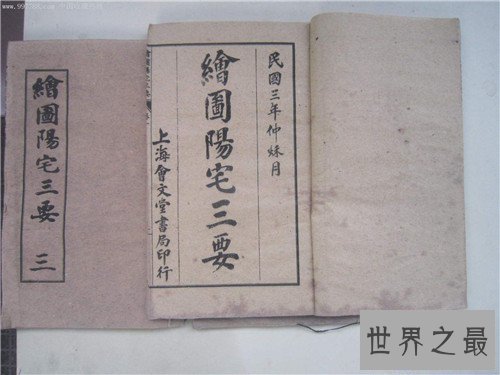 www.997788.com 中国收藏热线
民國三年仲秋月
繪圖陽宅三要
上海會文堂書局印行
繪圖陽宅三要 三
世界之最